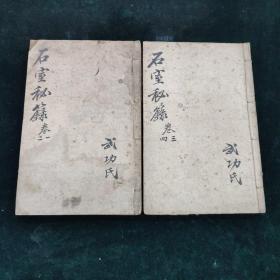 石室秘籙
卷一
二
武功氏
石室秘籙
卷三
四
武功氏